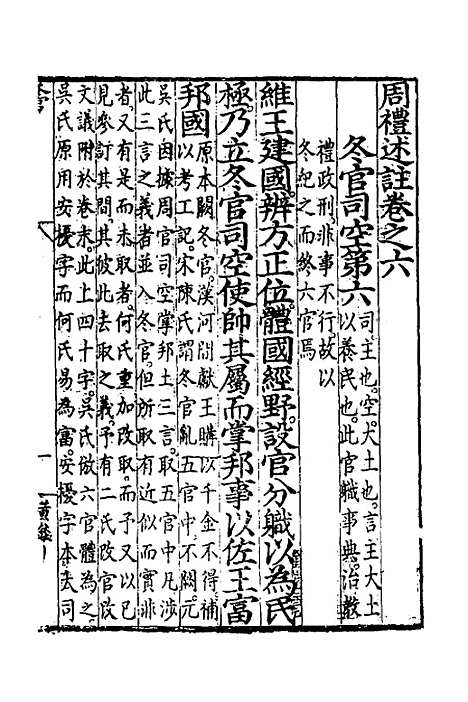 周禮述註卷之六
冬官司空第六
司主也空大土也言主大土
以養民也此官職事典治教
禮政刑非事不行故以
冬紀之而終六官焉
維王建國辨方正位體國經野設官分職以為民
極乃立冬官司空使帥其屬而掌邦事以佐王富
邦國
原本闕冬官漢河間獻王購以千金不得補
以考工記宋陳氏謂冬官亂五官中不闕元
吳氏因據周官司空掌邦土三言取五官中凡涉
此三言之義者並入冬官但所取有近似而實非
者又有是而未取者何氏重加改取而予又以已
見參訂其間其彼此去取之義予有二氏改官改
文議附於卷末此上四十字吳氏倣六官體為之
吳氏原用安擾字而何氏易為富安擾字本去司
黃鉞